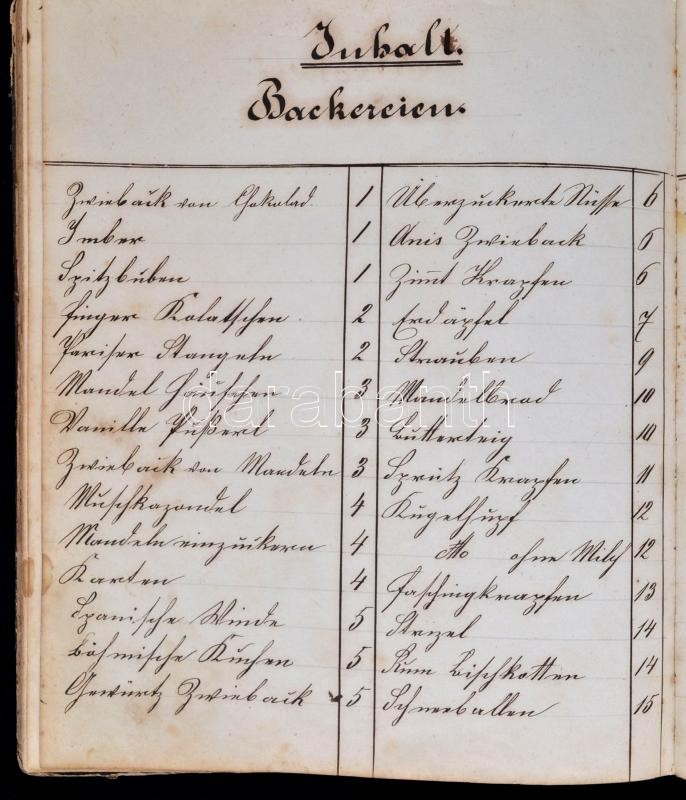 Inhalt.
Backereien.
Zwieback von Chokolad. 1
Imber 1
Spitzbuben 1
finger Kolatschen 2
Pariser Stangeln 2
Mandel Häufchen 3
Vanille Pußerl 3
Zwieback von Mandeln 3
Muschkazondel 4
Mandeln einzuckern 4
Karten 4
Spanische Winde 5
Böhmische Kuchen 5
Gewürtz Zwieback 5
Überzuckerte Nüsse 6
Anis Zwieback 6
Zimt Krapfen 6
Erdäpfel 7
Strauben 9
Mandelbrod 10
Butterteig 10
Spritz Krapfen 11
Kugelhupf 12
dtto ohne Milch 12
Faschingkrapfen 13
Strizel 14
Rum Bischkotten 14
Schneeballen 15
darabanth